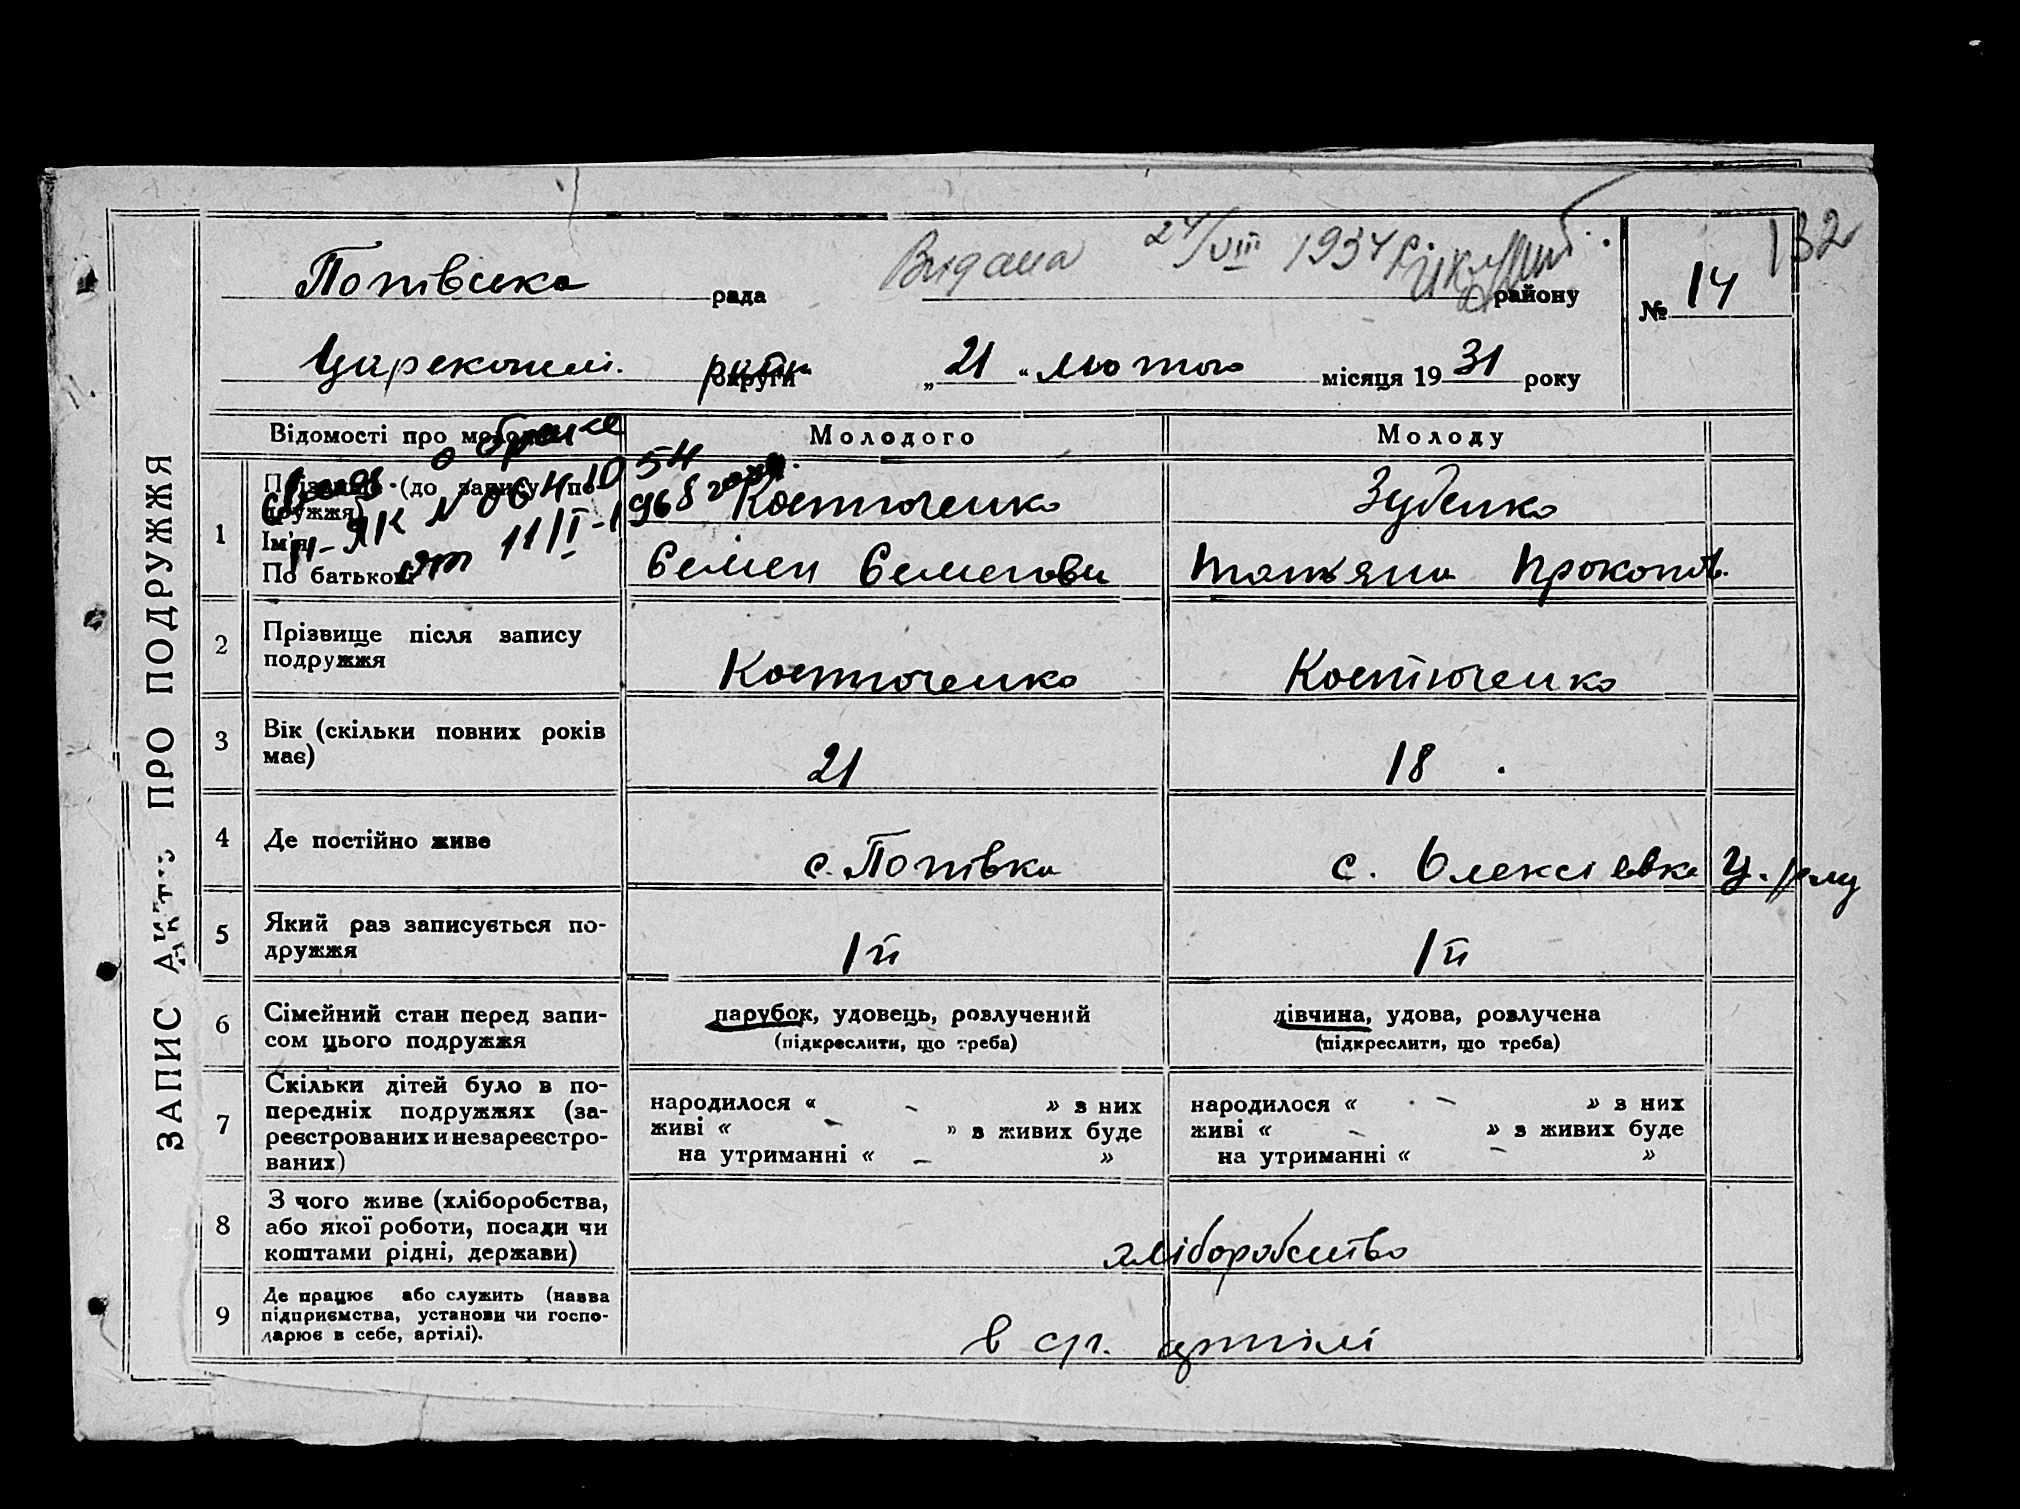 132
Видана 24/VIII 1934 р.
Попівська рада району
№ 14
Царекончі. округи
„ 21 “ лютого місяця 19 31 року
ЗАПИС АКТ ПРО ПОДРУЖЖЯ
Відомості про Молодого Молоду
о браке
1
Прізвище (до запису по-
дружжя)
Ім'я
По батькові
II-ЯК № 0641054
от 11/I-1968 года.
Костюченко Зубенко
Семен Семенови Татьяна Прокопів.
2
Прізвище після запису
подружжя
Костюченко Костюченко
3
Вік (скільки повних років
має)
21 18
4
Де постійно живе
с. Попівка с. Олексіевка Ц.
5
Який раз записується по-
дружжя
1й 1й
6
Сімейний стан перед запи-
сом цього подружжя
парубок, удовець, розлучений
(підкреслити, що треба)
дівчина, удова, розлучена
(підкреслити, що треба)
7
Скільки дітей було в по-
передніх подружжях (за-
реєстрованих и незареєстро-
ваних)
народилося « - » з них
живі « - » з живих буде
на утриманні « - »
народилося « - » з них
живі « - » з живих буде
на утриманні « - »
8
З чого живе (хліборобства,
або якої роботи, посади чи
коштами рідні, держави)
хліборобство
9
Де працює або служить (назва
підприємства, установи чи госпо-
дарює в себе, артілі).
в с/г. артілі